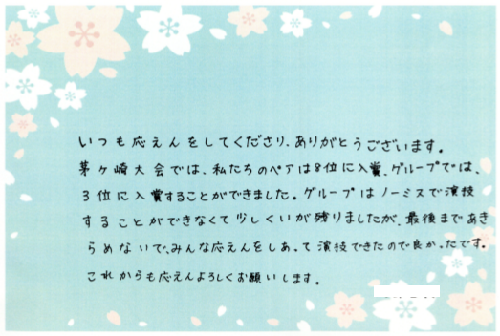 いつも応えんをしてくださり、ありがとうございます。
茅ヶ崎大会では、私たちのペアは8位に入賞、グループでは、
3位に入賞することができました。グループはノーミスで演技
することができなくて少しくいが残りましたが、最後まであき
らめないで、みんな応えんをしあって演技できたので良かったです。
これからも応えんよろしくお願いします。